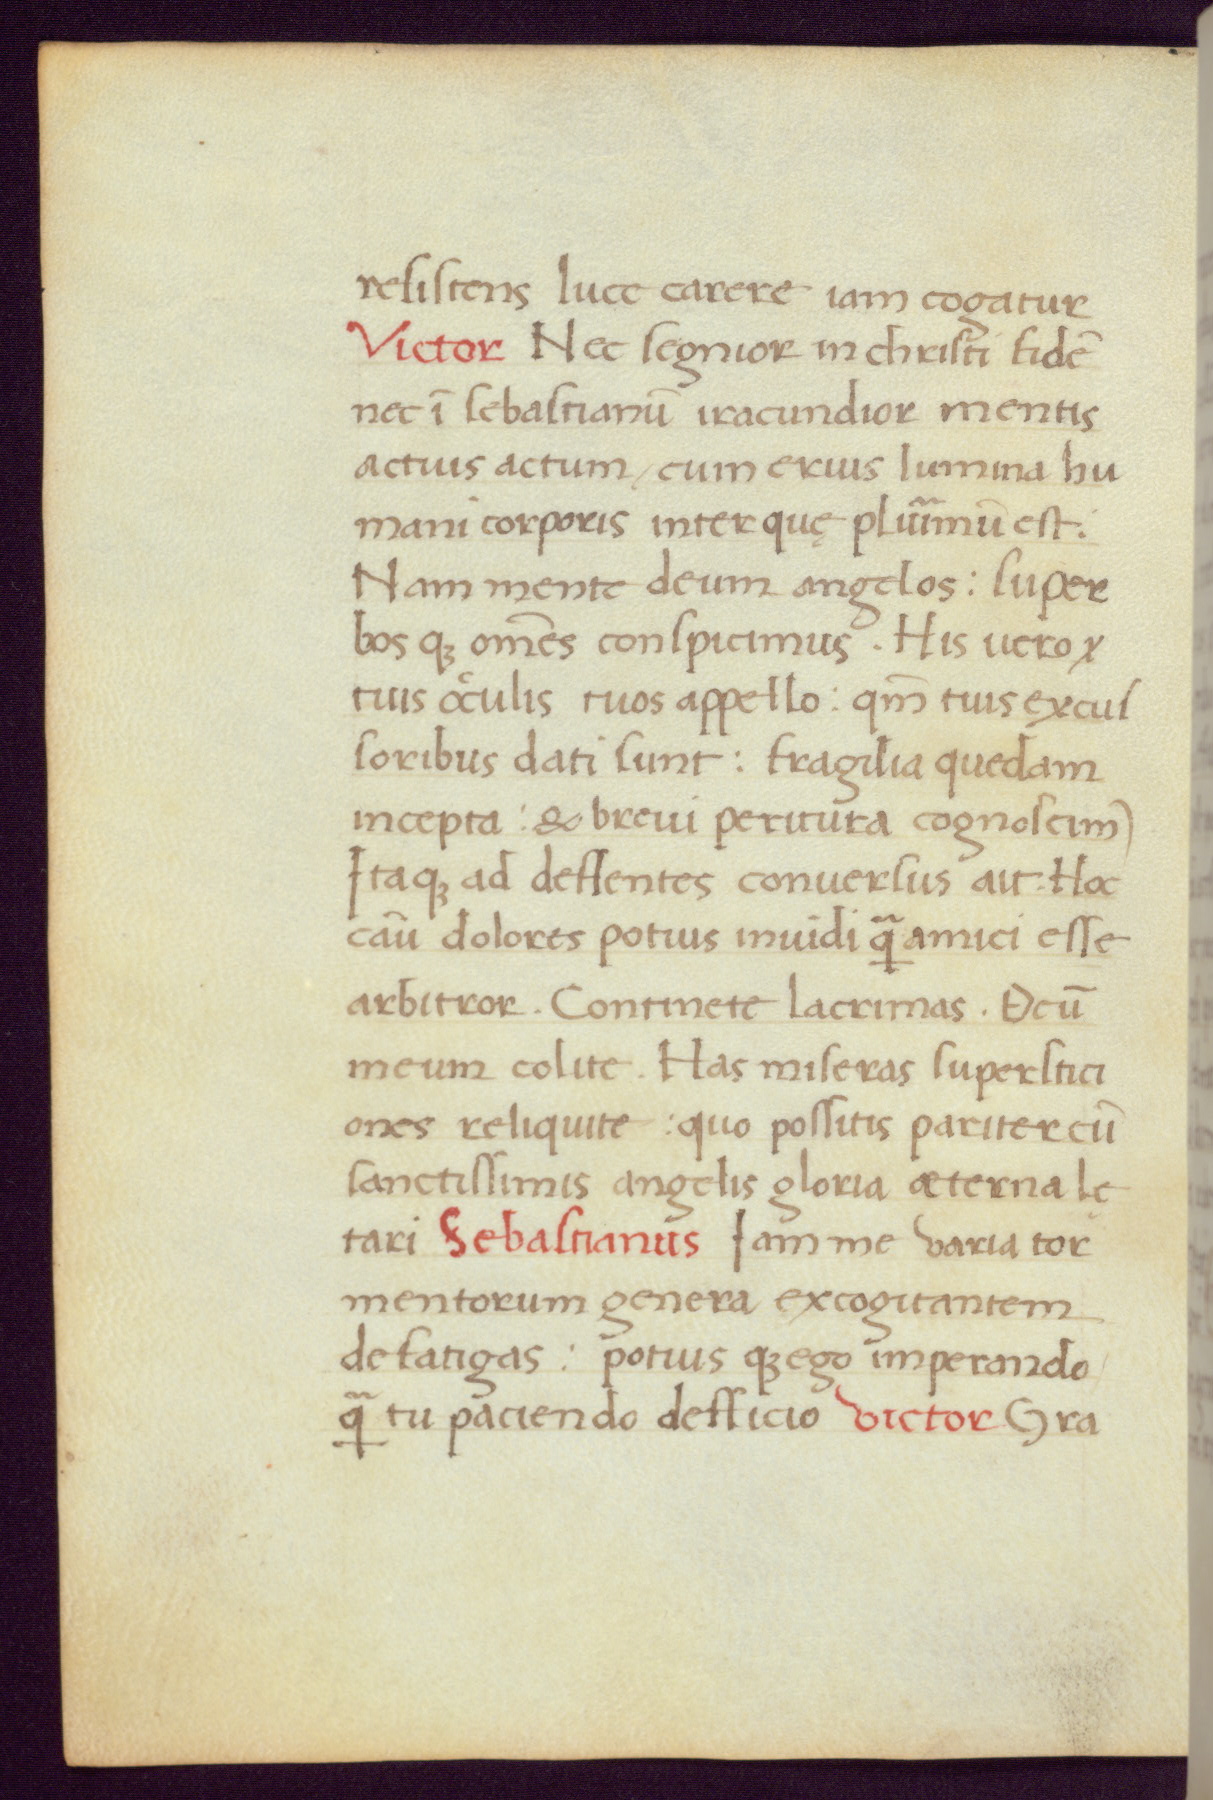 resistens luce carere iam cogatur
Victor Nec segnior in christi fidē
nec ī sebastianū iracundior mentis
actuis actum, cum eruis lumina hu
mani corporis inter quę plurimū est.
Nam mente deum angelos: super
bos qꝫ omēs conspicimus. His uero
tuis oculis tuos appello: qm̄ tuis excul
soribus dati sunt: fragilia quedam
incepta: & breui peritura cognoscim)
Itaqꝫ ad deflentes conuersus ait. Hoc
cāu dolores potius inuidi qᷓ amici esse
arbitror. Continete lacrimas. Dcū
meum colite. Has miseras superstici
ones reliquite: quo possitis pariter cū
sanctissimis angelis gloria æterna lę
tari Sebastianus Iam me varia tor
mentorum genera excogitantem
defatigas: potius qꝫ ego imperando
qᷓ tu paciendo defficio victor Gra